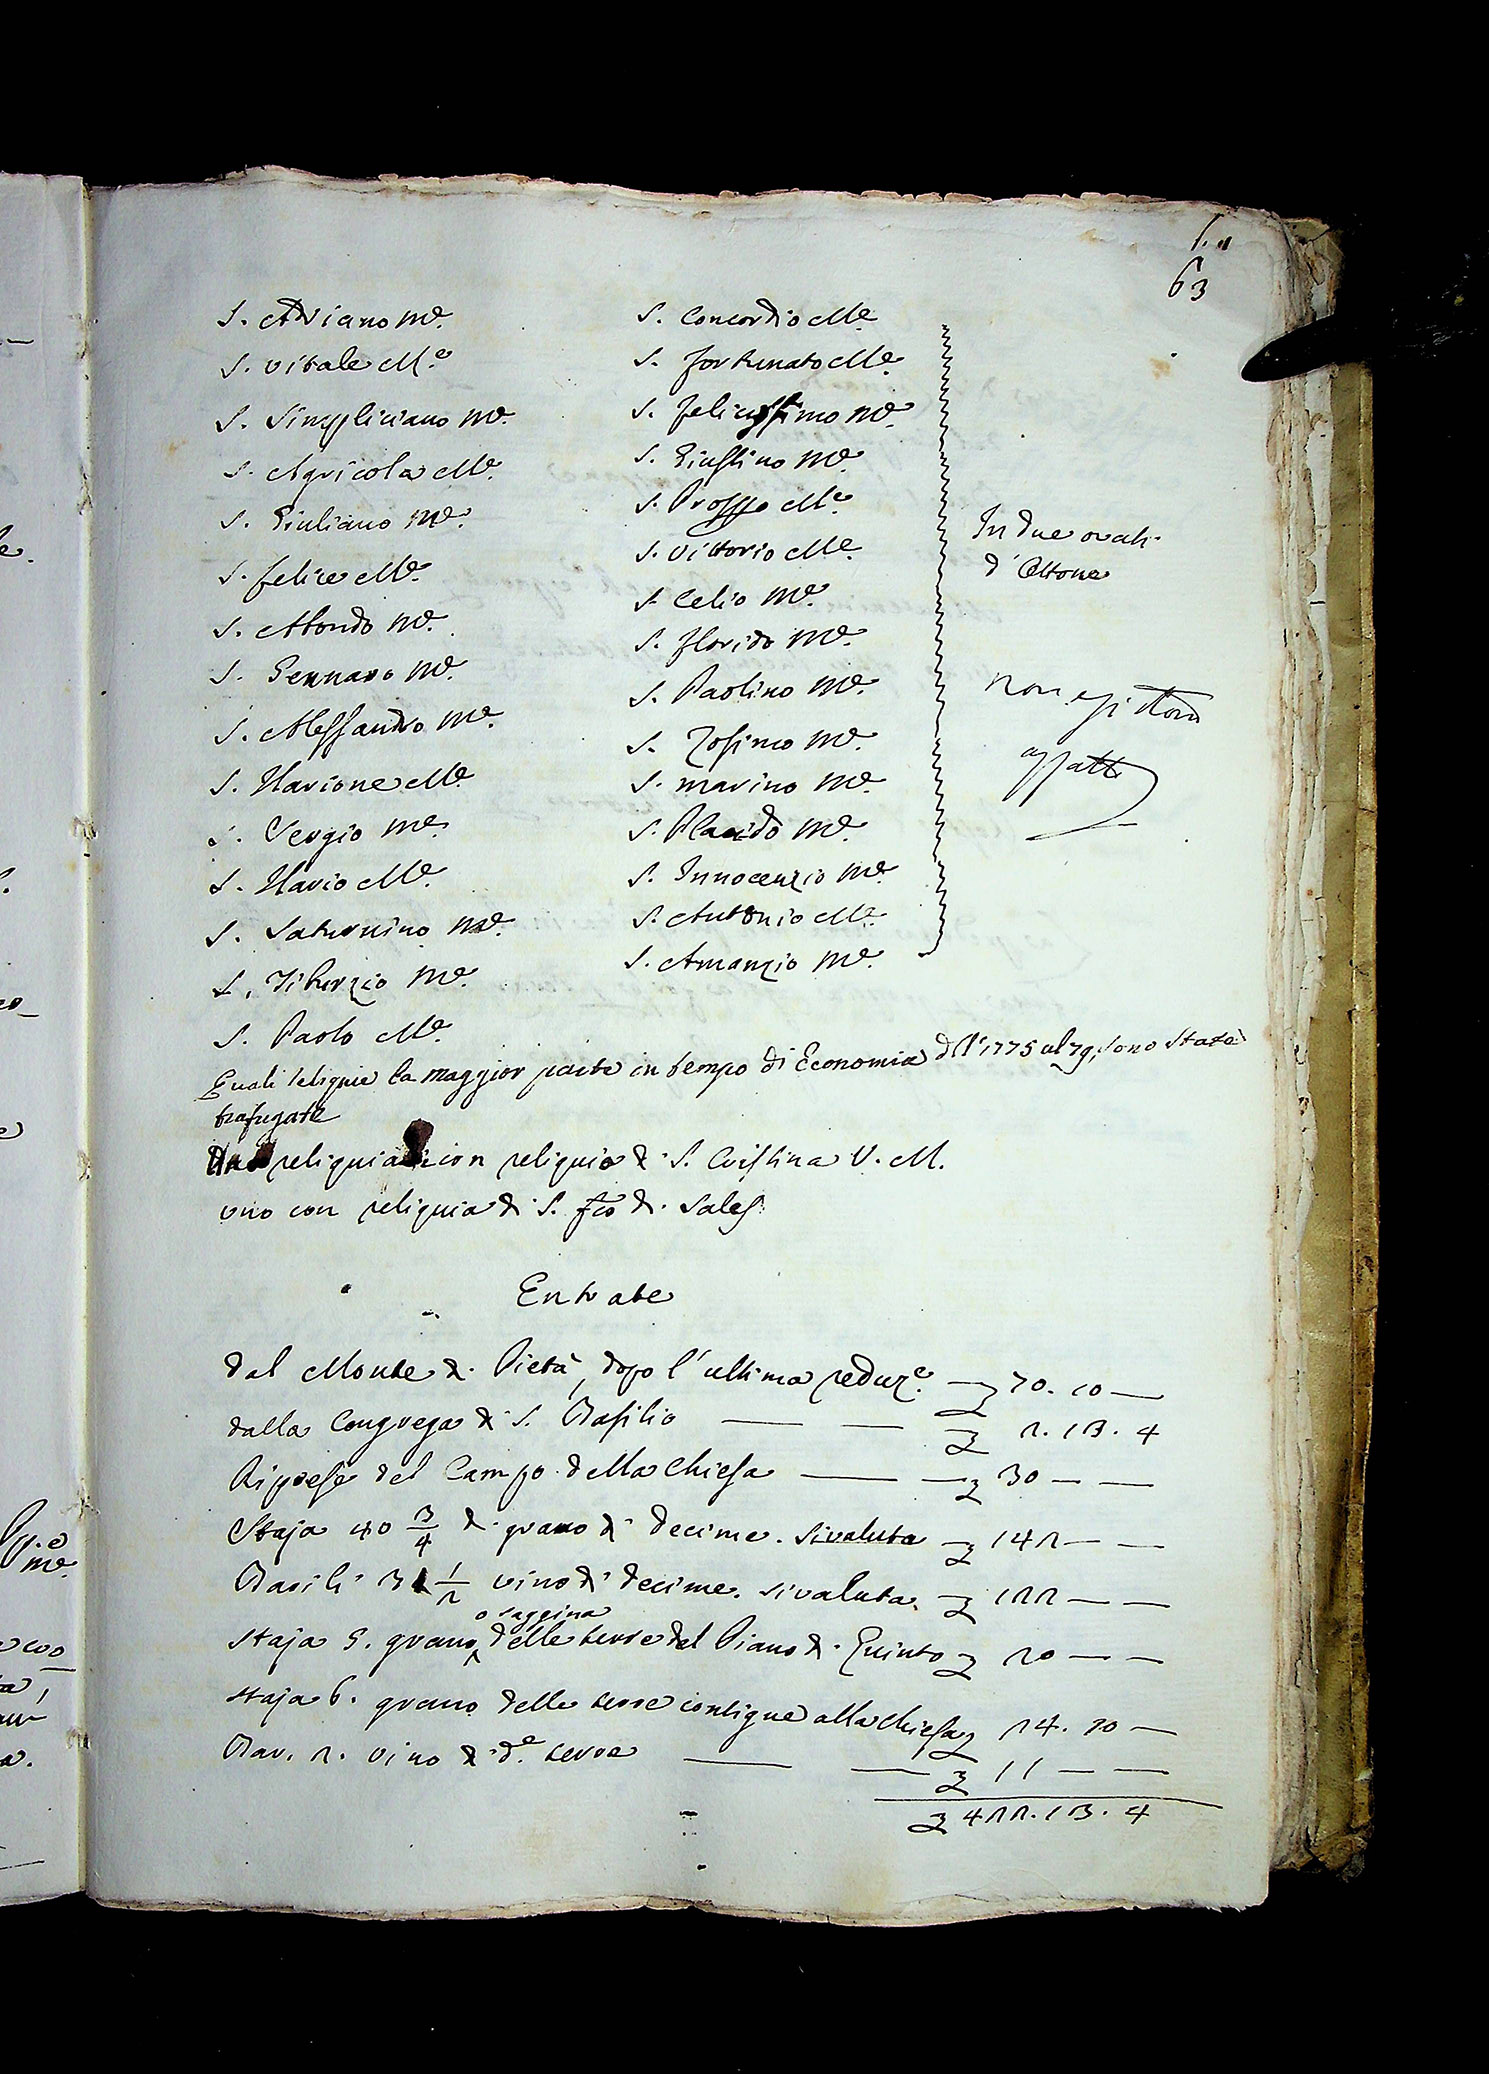 63
S. Adriano Me.
S. Vitale Me.
S. Simpliciano Me.
S. Agricola Me.
S. Giuliano Me.
S. Felice Me.
S. Abondo Me.
S. Gennaro Me.
S. Alessandro Me.
S. Ilarione Me.
S. Sergio Me.
S. Ilario Me.
S. Saturnino Me.
S. Tiburzio Me.
S. Paolo Me.
S. Concordio Me.
S. Fortunato Me.
S. Felicissimo Me.
S. Giustino Me.
S. Prospo Me.
S. Vittorio Me.
S. Celio Me.
S. Florido Me.
S. Paolino Me.
S. Zosimo Me.
S. Marino Me.
S. Placido Me.
S. Innocenzio Me.
S. Antonio Me.
S. Amanzio Me.
In due ovali
d'Ottone
non esistono
affatto
Quali reliquie la maggior parte in tempo di Economia dell'1775 al 79, sono state
trafugate
reliquia con reliquia di S. Cristina V. M.
uno con reliquia di S. Fco di Sales
Entrate
dal Monte di Pietà, dopo l'ultima reduze. — 70. 10 —
dalla Congrega di S. Basilio — — 2. 13. 4
Riprese del Campo della Chiesa — — 30 — —
Staja 40 3/4 di grano di decime. si valuta — 142 — —
Barili 31 1/2 vino di decime. si valuta — 122 — —
o saggina
Staja 5. grano delle terre del Piano di Quinto 20 — —
Staja 6. grano delle terre contigue alla Chiesa 24. 10 —
Bar. 2. vino di de. terre — — 11 — —
422. 13. 4